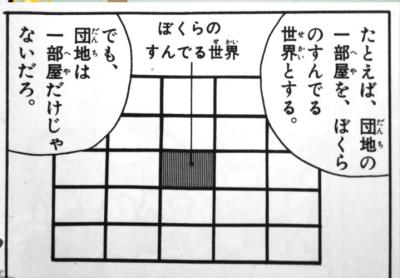 たとえば、団地の
一部屋を、ぼくら
のすんでる
世界とする。
ぼくらの
すんでる世界
でも、
団地は
一部屋だけじゃ
ないだろ。